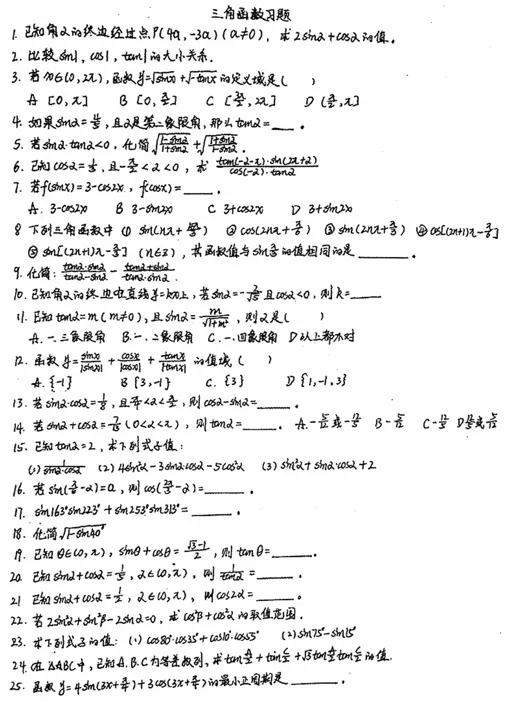 三角函数习题
1. 已知角α的终边经过点P(4a, -3a) (a≠0), 求 2sinα+cosα的值.
2. 比较sin1, cos1, tan1的大小关系.
3. 若x∈(0, 2π), 函数y=√sinx+√-tanx的定义域是( )
A [0, π] B [0, π/2] C [3π/2, 2π] D (π/2, π]
4. 如果sinα= , 且α是第二象限角, 那么tanα=____.
5. 若sinα·tanα<0, 化简√((1-sinα)/(1+sinα))+√((1+sinα)/(1-sinα)).
6. 已知cosα= , 且-π/2<α<0, 求 tan(-α-π)·sin(2π+α)/cos(-α)·tanα
7. 若f(sinx)=3-cos2x, f(cosx)=____.
A. 3-cos2x B 3-sin2x C 3+cos2x D 3+sin2x
8 下列三角函数中 ① ② cos(2nπ+ ) ③ sin(2nπ+π/3) ④ cos[(2n+1)π- ]
⑤ sin[(2n+1)π-π/3] (n∈Z), 其函数值与sinπ/3的值相同的是____.
9. 化简: tanα·sinα/(tanα-sinα) - (tanα+sinα)/(tanα·sinα).
10. 已知角α的终边在直线y=kx上, 若sinα=-2/√5且cosα<0, 则k=____
11. 已知tanα=m (m≠0), 且sinα=m/√(1+m²), 则α是( )
A. 一.三象限角 B. 一.二象限角 C. 一.四象限角 D 以上都不对
12. 函数y=sinx/|sinx|+cosx/|cosx|+tanx/|tanx|的值域( )
A. {-1} B {3, -1} C. {3} D {1, -1, 3}
13. 若sinα·cosα=1/8, 且π/4<α<π/2, 则cosα-sinα=____.
14. 若sinα+cosα= (0<α<π), 则tanα=____.
15. 已知tanα=2, 求下列式子值:
(1) 1/(sinα·cosα) (2) 4sin²α-3sinα·cosα-5cos²α (3) sin²α+sinα·cosα+2
16. 若sin( -α)=a, 则cos( -α)=____.
17. sin163°sin223°+sin253°sin313°=____.
18. 化简
19. 已知θ∈(0, π), sinθ+cosθ=(√3-1)/2, 则tanθ=____.
20. 已知sinα+cosα=1/5, α∈(0, π), 则1/tanα=____.
21 已知sinα+cosα=1/2, α∈(0, π), 则cos2α=____.
22. 若2sin²α+sin²β-2sinα=0, 求cos²β+cos²α的取值范围.
23. 求下列式子的值: (1) cos80°·cos35°+cos10°·cos55° (2) sin75°-sin15°
24. 在△ABC中, 已知A.B.C为等差数列, 求tanA/2+tanC/2+√3tanA/2tanC/2的值.
25. 函数y=4sin(3x+π/4)+3cos(3x+π/4)的最小正周期是____.